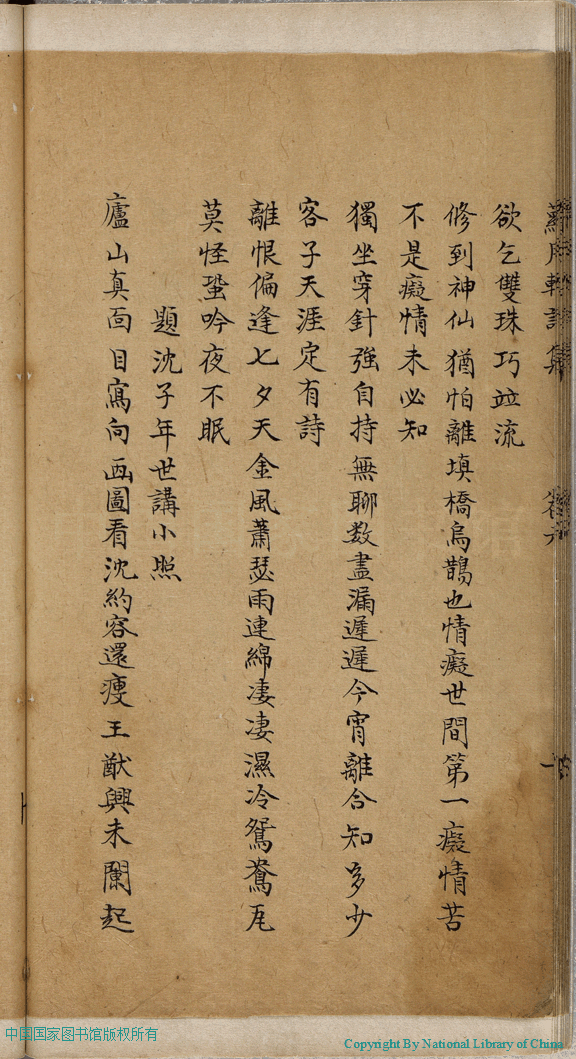 欲乞雙珠巧竝流
修到神仙猶怕離填橋烏鵲也情癡世間第一癡情苦
不是癡情未必知
獨坐穿針強自持無聊数盡漏遲遲今宵離合知多少
客子天涯定有詩
離恨偏逢七夕天金風蕭瑟雨連綿凄凄濕冷鴛鴦瓦
莫怪蛩吟夜不眠
題沈子年世講小照
廬山真面目寫向画圖看沈約容還瘦王猷興未闌起
中国国家图书馆版权所有
Copyright By National Library of China